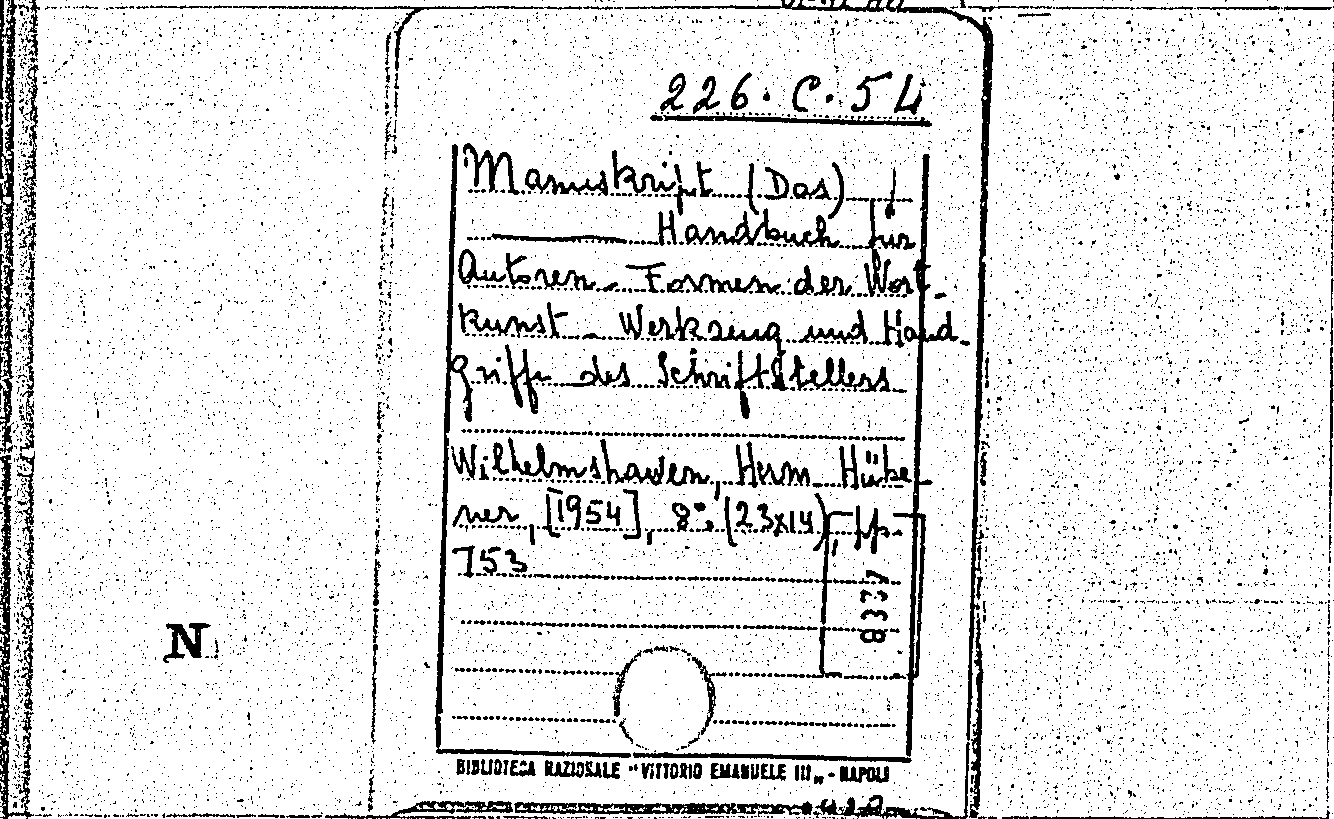 226. C. 54
Manuskript (Das)!
Handbuch für
Autoren - Formen der Wort-
kunst - Werkzeug und Hand-
griffe des Schriftstellers
Wilhelmshawen, Herm. Hübe-
ner, [1954], 8°. (23x14), pp.
753
8337
N
BIBLIOTECA NAZIONALE "VITTORIO EMANUELE III„ - NAPOLI